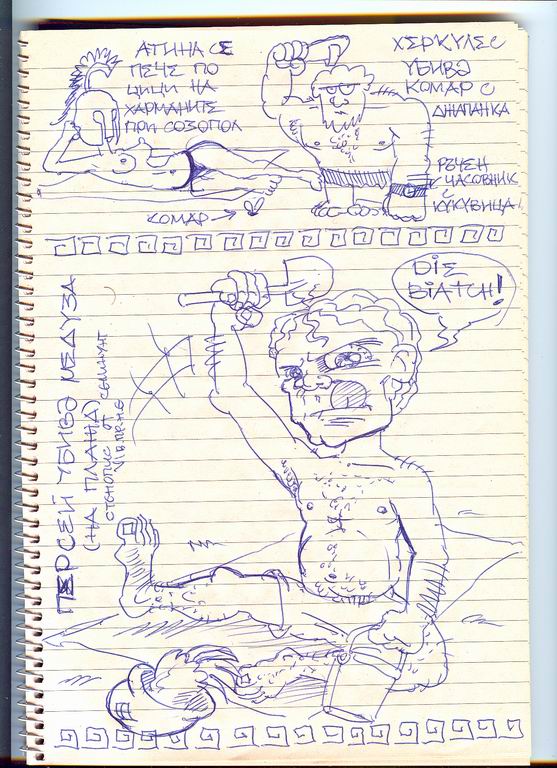 АТИНА СЕ
ПЕЧЕ ПО
ЦИЦИ НА
ХАРМАНИТЕ
ПРИ СОЗОПОЛ
ХЕРКУЛЕС
УБИВА
КОМАР С
ДЖАПАНКА
РЪЧЕН
ЧАСОВНИК
С
КУКУВИЦА!
КОМАР
DIE
BIATCH!
ПЕРСЕЙ УБИВА МЕДУЗА
(НА ПЛАЖА)
СТЕНОПИС ОТ